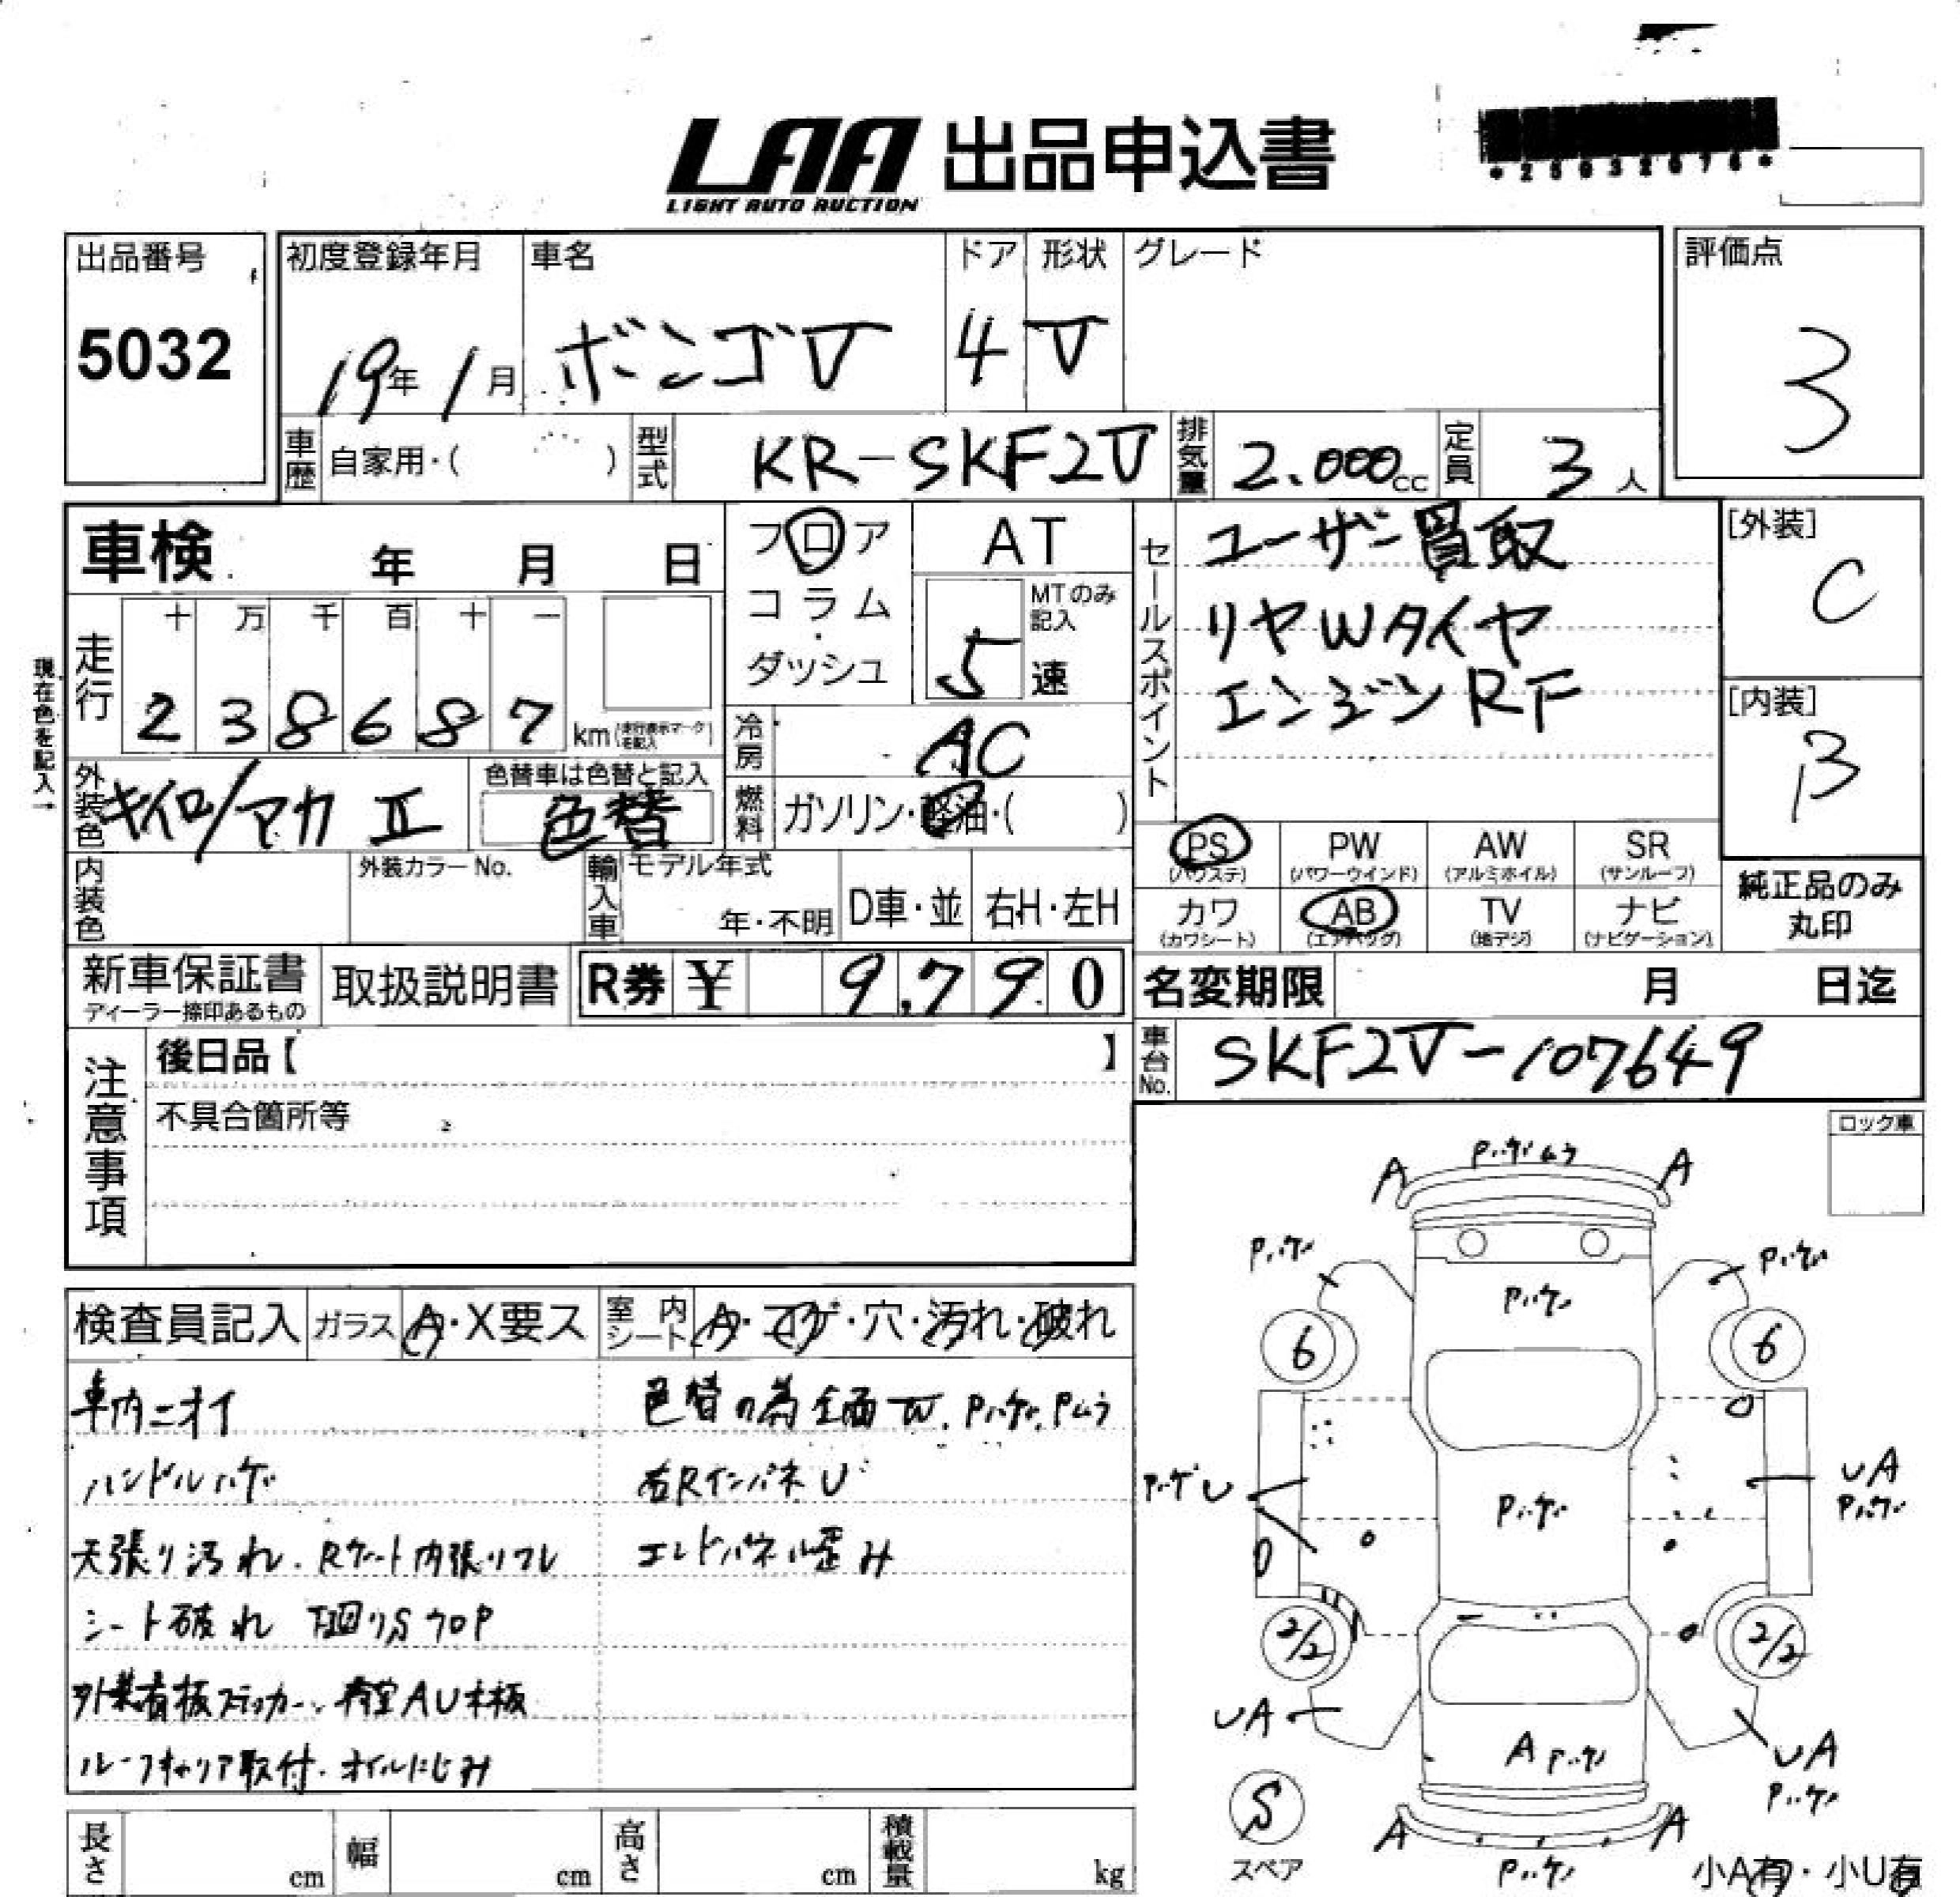 LAA 出品申込書
LIGHT AUTO AUCTION
*25032076*
出品番号
5032
初度登録年月 車名 ドア 形状 グレード
19年 1月 ボンゴV 4 V
評価点
3
車歴 自家用・( ) 型式 KR-SKF2V 排気量 2.000cc 定員 3人
車検 年 月 日
フロア コラム・ダッシュ
AT
MTのみ記入
5速
セールスポイント
ユーザー買取
リヤWタイヤ
エンジンRF
[外装]
C
[内装]
B
走行 十 万 千 百 十 一
2 3 8 6 8 7 km(走行表示マークを記入)
現在色を記入→
冷房 AC
外装色 キイロ/アカ II 色替車は色替と記入 色替
燃料 ガソリン・軽油・( )
PS (パワステ) PW (パワーウインド) AW (アルミホイル) SR (サンルーフ)
カワ (カワシート) AB (エアバッグ) TV (地デジ) ナビ (ナビゲーション)
純正品のみ丸印
内装色 外装カラーNo. 輸入車 モデル年式 年・不明 D車・並 右H・左H
新車保証書 ディーラー捺印あるもの 取扱説明書 R券 ¥ 9,790
名変期限 月 日迄
車台No. SKF2V-107649
注意事項
後日品【 】
不具合箇所等
ロック車
検査員記入 ガラス A・X要ス 室内シート A・コゲ・穴・汚れ・破れ
車内ニオイ
ハンドルハゲ
天張り汚れ. Rゲート内張リフレ
シート破れ 下回りS
外装看板ステッカー、荷室AU木板
ルーフキャリア取付・オイルにじみ
色替の為全面W. Pハゲ. Pムラ
右RインパネU
エンドパネル歪み
A Pハゲムラ A
Pハゲ Pハゲ
Pハゲ
6 6
PハゲU Pハゲ UA
Pハゲ
2/2 2/2
UA A Pハゲ UA
Pハゲ
S
スペア
A A
Pハゲ
小A有・小U有
長さ cm 幅 cm 高さ cm 積載量 kg